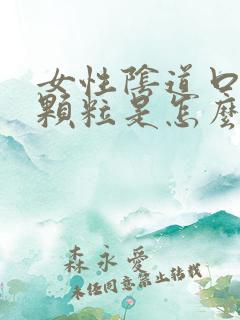 女性陰道口
顆粒是怎麼
森永愛
未经同意禁止转载